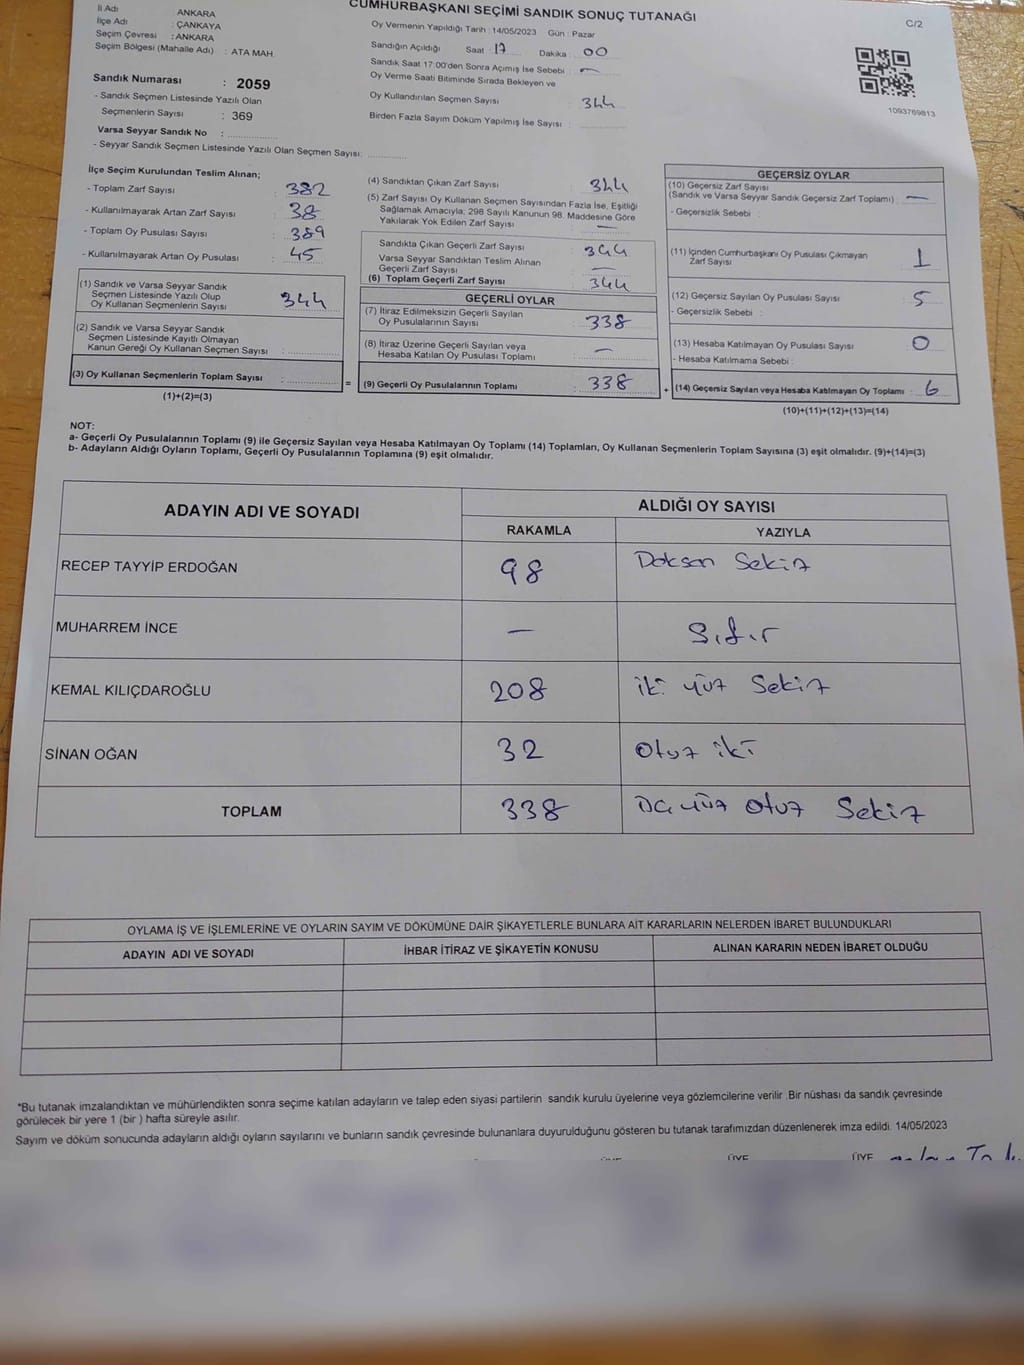 CUMHURBAŞKANI SEÇİMİ SANDIK SONUÇ TUTANAĞI
C/2
İl Adı : ANKARA
İlçe Adı : ÇANKAYA
Seçim Çevresi : ANKARA
Seçim Bölgesi (Mahalle Adı) : ATA MAH.
Sandık Numarası : 2059
- Sandık Seçmen Listesinde Yazılı Olan
Seçmenlerin Sayısı : 369
Varsa Seyyar Sandık No :
- Seyyar Sandık Seçmen Listesinde Yazılı Olan Seçmen Sayısı:
Oy Vermenin Yapıldığı Tarih : 14/05/2023 Gün : Pazar
Sandığın Açıldığı Saat : 17 Dakika : 00
Sandık Saat 17:00'den Sonra Açılmış İse Sebebi : —
Oy Verme Saati Bitiminde Sırada Bekleyen ve
Oy Kullandırılan Seçmen Sayısı : 344
Birden Fazla Sayım Döküm Yapılmış İse Sayısı :
1093769813
İlçe Seçim Kurulundan Teslim Alınan;
- Toplam Zarf Sayısı : 382
- Kullanılmayarak Artan Zarf Sayısı : 38
- Toplam Oy Pusulası Sayısı : 389
- Kullanılmayarak Artan Oy Pusulası : 45
(1) Sandık ve Varsa Seyyar Sandık
Seçmen Listesinde Yazılı Olup
Oy Kullanan Seçmenlerin Sayısı : 344
(2) Sandık ve Varsa Seyyar Sandık
Seçmen Listesinde Kayıtlı Olmayan
Kanun Gereği Oy Kullanan Seçmen Sayısı :
(3) Oy Kullanan Seçmenlerin Toplam Sayısı :
(1)+(2)=(3)
=
(4) Sandıktan Çıkan Zarf Sayısı : 344
(5) Zarf Sayısı Oy Kullanan Seçmen Sayısından Fazla İse, Eşitliği
Sağlamak Amacıyla; 298 Sayılı Kanunun 98. Maddesine Göre
Yakılarak Yok Edilen Zarf Sayısı : —
Sandıkta Çıkan Geçerli Zarf Sayısı : 344
Varsa Seyyar Sandıktan Teslim Alınan
Geçerli Zarf Sayısı : —
(6) Toplam Geçerli Zarf Sayısı : 344
GEÇERLİ OYLAR
(7) İtiraz Edilmeksizin Geçerli Sayılan
Oy Pusulalarının Sayısı : 338
(8) İtiraz Üzerine Geçerli Sayılan veya
Hesaba Katılan Oy Pusulası Toplamı : —
(9) Geçerli Oy Pusulalarının Toplamı : 338
+
GEÇERSİZ OYLAR
(10) Geçersiz Zarf Sayısı
(Sandık ve Varsa Seyyar Sandık Geçersiz Zarf Toplamı) : —
- Geçersizlik Sebebi :
(11) İçinden Cumhurbaşkanı Oy Pusulası Çıkmayan
Zarf Sayısı : 1
(12) Geçersiz Sayılan Oy Pusulası Sayısı : 5
- Geçersizlik Sebebi :
(13) Hesaba Katılmayan Oy Pusulası Sayısı : 0
- Hesaba Katılmama Sebebi :
(14) Geçersiz Sayılan veya Hesaba Katılmayan Oy Toplamı : 6
(10)+(11)+(12)+(13)=(14)
NOT:
a- Geçerli Oy Pusulalarının Toplamı (9) ile Geçersiz Sayılan veya Hesaba Katılmayan Oy Toplamı (14) Toplamları, Oy Kullanan Seçmenlerin Toplam Sayısına (3) eşit olmalıdır. (9)+(14)=(3)
b- Adayların Aldığı Oyların Toplamı, Geçerli Oy Pusulalarının Toplamına (9) eşit olmalıdır.
ADAYIN ADI VE SOYADI ALDIĞI OY SAYISI
RAKAMLA YAZIYLA
RECEP TAYYİP ERDOĞAN 98 Doksan Sekiz
MUHARREM İNCE — Sıfır
KEMAL KILIÇDAROĞLU 208 iki yüz Sekiz
SİNAN OĞAN 32 Otuz iki
TOPLAM 338 Üç yüz Otuz Sekiz
OYLAMA İŞ VE İŞLEMLERİNE VE OYLARIN SAYIM VE DÖKÜMÜNE DAİR ŞİKAYETLERLE BUNLARA AİT KARARLARIN NELERDEN İBARET BULUNDUKLARI
ADAYIN ADI VE SOYADI İHBAR İTİRAZ VE ŞİKAYETİN KONUSU ALINAN KARARIN NEDEN İBARET OLDUĞU
*Bu tutanak imzalandıktan ve mühürlendikten sonra seçime katılan adayların ve talep eden siyasi partilerin sandık kurulu üyelerine veya gözlemcilerine verilir. Bir nüshası da sandık çevresinde
görülecek bir yere 1 (bir ) hafta süreyle asılır.
Sayım ve döküm sonucunda adayların aldığı oyların sayılarını ve bunların sandık çevresinde bulunanlara duyurulduğunu gösteren bu tutanak tarafımızdan düzenlenerek imza edildi. 14/05/2023
ÜYE ÜYE